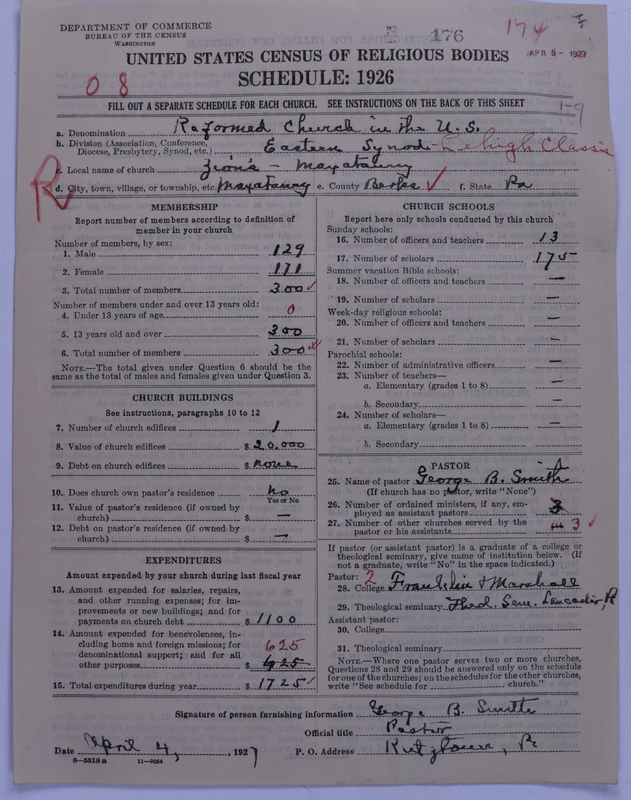 DEPARTMENT OF COMMERCE
BUREAU OF THE CENSUS
WASHINGTON
E 176
174
APR 5 - 1927
UNITED STATES CENSUS OF RELIGIOUS BODIES
SCHEDULE: 1926
08
FILL OUT A SEPARATE SCHEDULE FOR EACH CHURCH. SEE INSTRUCTIONS ON THE BACK OF THIS SHEET
1-9
a. Denomination Reformed Church in the U.S.
b. Division (Association, Conference, Diocese, Presbytery, Synod, etc.) Eastern Synod - Lehigh Classis
c. Local name of church Zion's - Maxatawny
R
d. City, town, village, or township, etc. Maxatawny e. County Berks ✓ f. State Pa
MEMBERSHIP
Report number of members according to definition of
member in your church
Number of members, by sex:
1. Male 129
2. Female 171
3. Total number of members 300 ✓
Number of members under and over 13 years old:
4. Under 13 years of age 0
5. 13 years old and over 300
6. Total number of members 300 ✓
NOTE.—The total given under Question 6 should be the
same as the total of males and females given under Question 3.
CHURCH BUILDINGS
See instructions, paragraphs 10 to 12
7. Number of church edifices 1
8. Value of church edifices $ 20,000
9. Debt on church edifices $ none
10. Does church own pastor's residence No
Yes or No
11. Value of pastor's residence (if owned by
church) $ —
12. Debt on pastor's residence (if owned by
church) $ —
EXPENDITURES
Amount expended by your church during last fiscal year
13. Amount expended for salaries, repairs,
and other running expenses; for im-
provements or new buildings; and for
payments on church debt $ 1100
14. Amount expended for benevolences, in-
cluding home and foreign missions; for
denominational support; and for all
other purposes $ 625
15. Total expenditures during year $ 1725 ✓
CHURCH SCHOOLS
Report here only schools conducted by this church
Sunday schools:
16. Number of officers and teachers 13
17. Number of scholars 175
Summer vacation Bible schools:
18. Number of officers and teachers —
19. Number of scholars —
Week-day religious schools:
20. Number of officers and teachers —
21. Number of scholars —
Parochial schools:
22. Number of administrative officers —
23. Number of teachers—
a. Elementary (grades 1 to 8) —
b. Secondary —
24. Number of scholars—
a. Elementary (grades 1 to 8) —
b. Secondary
PASTOR
25. Name of pastor George B. Smith
(If church has no pastor, write "None")
26. Number of ordained ministers, if any, em-
ployed as assistant pastors
27. Number of other churches served by the
pastor or his assistants 3 ✓
If pastor (or assistant pastor) is a graduate of a college or
theological seminary, give name of institution below. (If
not a graduate, write "No" in the space indicated.)
Pastor: 2
28. College Franklin & Marshall
29. Theological seminary Theol. Sem. Lancaster, Pa
Assistant pastor:
30. College
31. Theological seminary
NOTE.—Where one pastor serves two or more churches,
Questions 28 and 29 should be answered only on the schedule
for one of the churches; on the schedules for the other churches,
write "See schedule for ____ church."
Signature of person furnishing information George B. Smith
Official title Pastor
Date April 4, 1927 P. O. Address Kutztown, Pa
8—5518a 11—9054